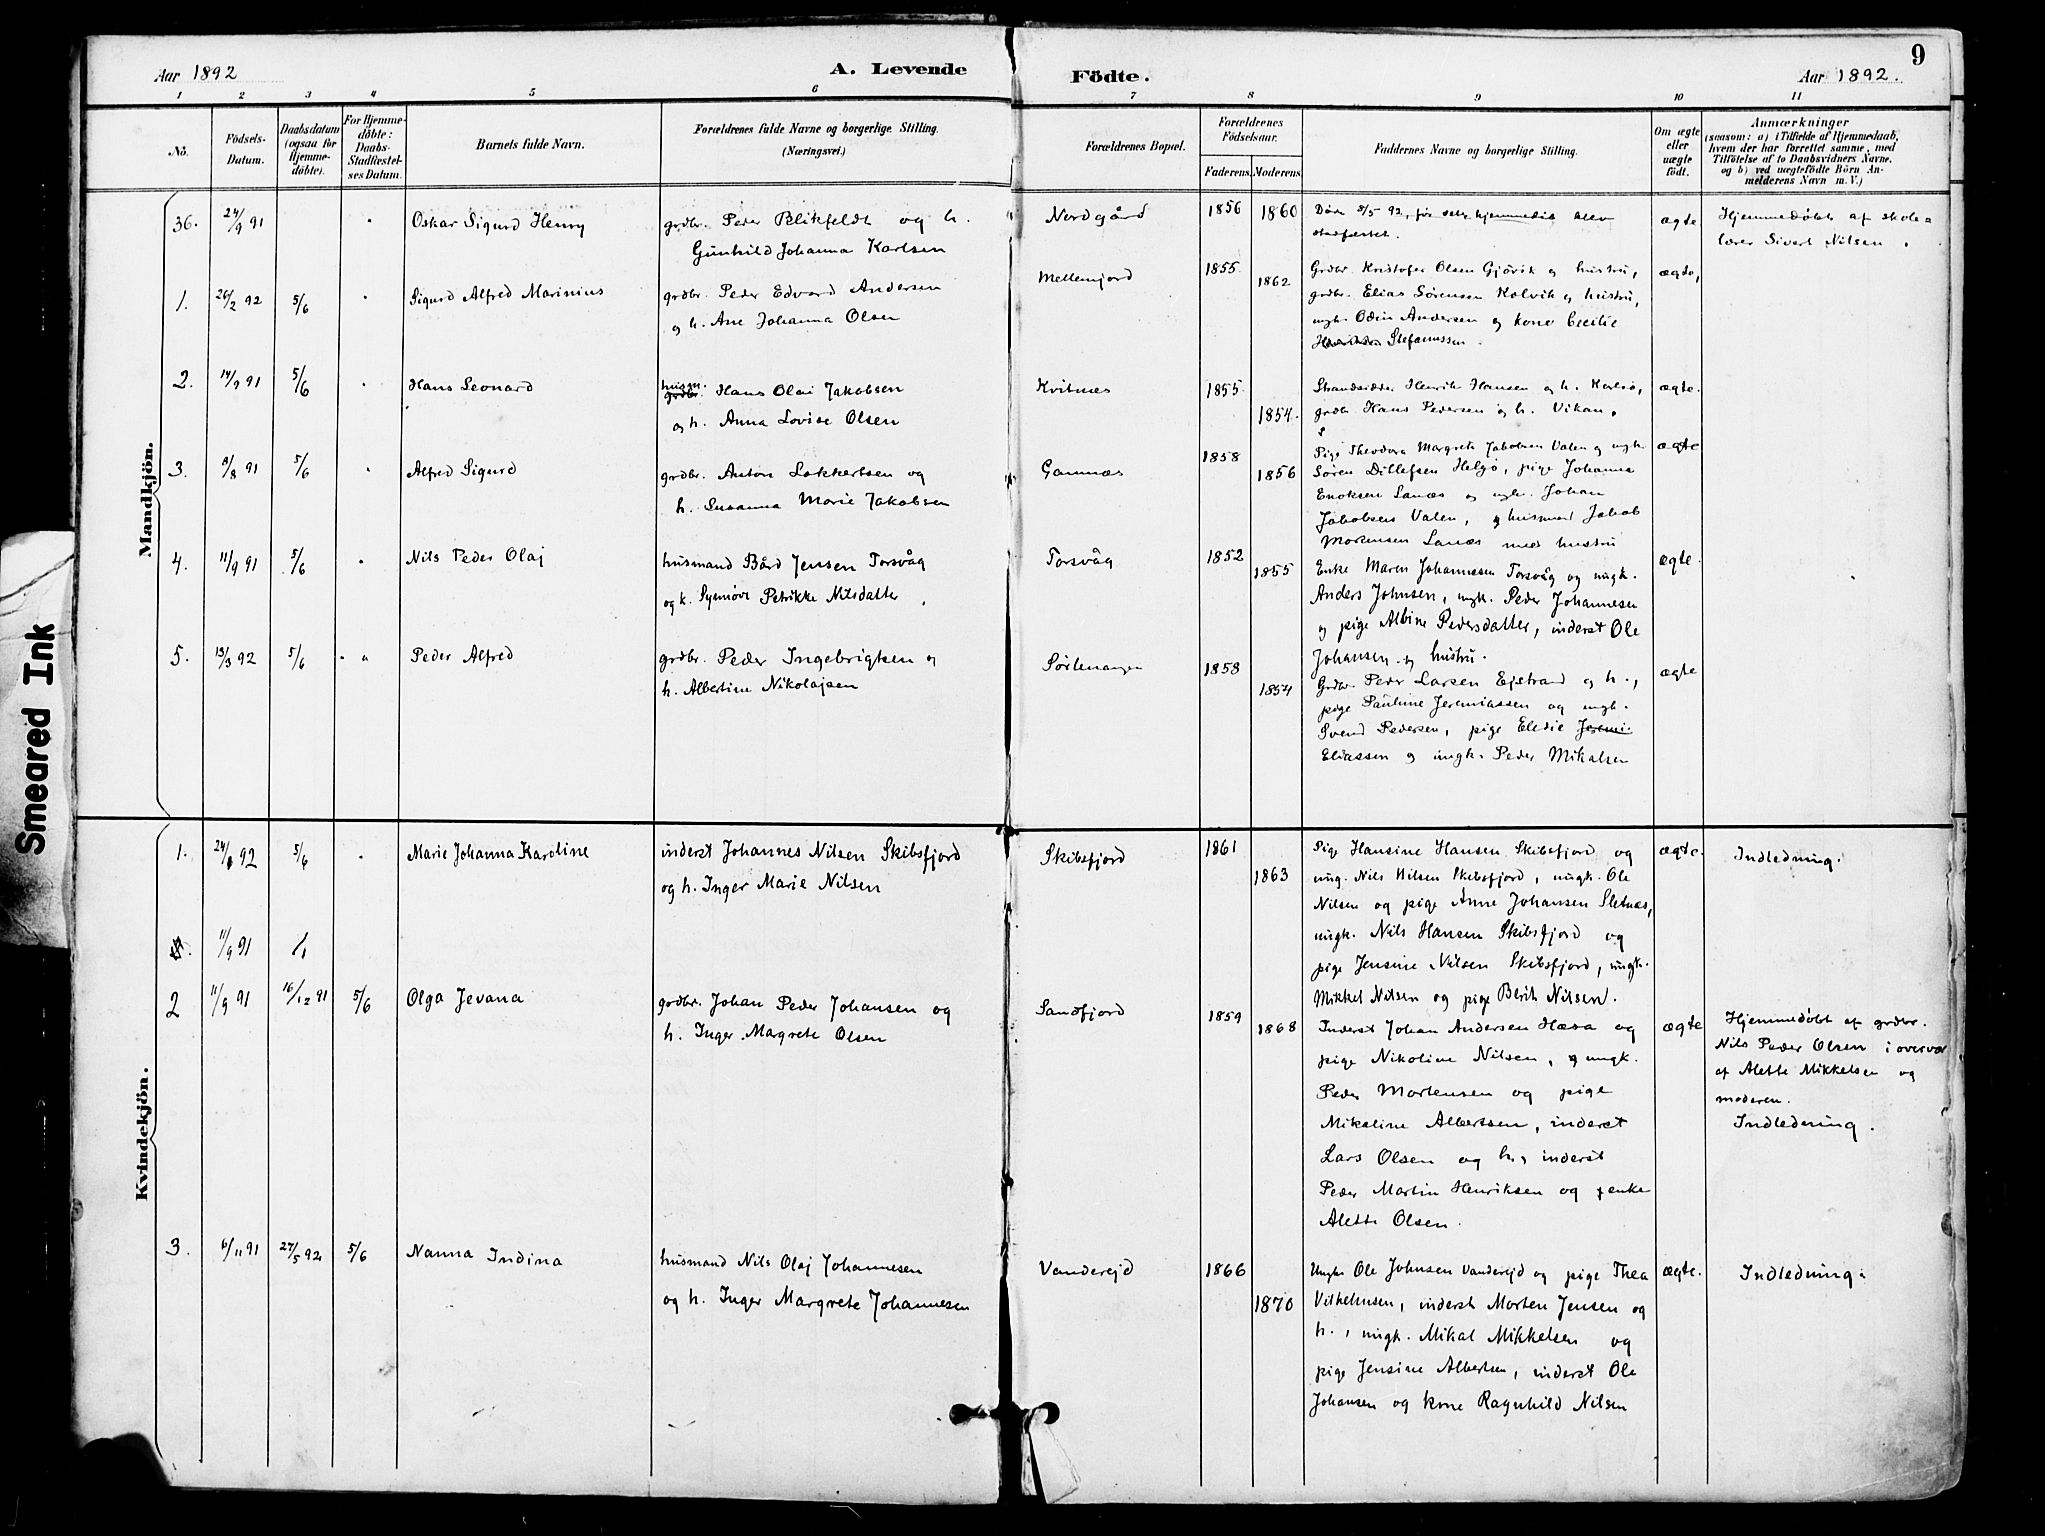 Aar 1892
A. Levende
Födte.
Aar 1892.
9
1 2 3 4 5 6 7 8 9 10 11
No.
Födsels-
Datum.
Daabsdatum
(ogsaa for
Hjemme-
döbte).
For Hjemme-
döbte:
Daabs-
Stadfæstel-
ses Datum.
Barnets fulde Navn.
Forældrenes fulde Navne og borgerlige Stilling.
(Næringsvei.)
Forældrenes Bopæl.
Forældrenes
Födselsaar.
Faderens. Moderens.
Faddernes Navne og borgerlige Stilling.
Om ægte
eller
uægte
födt.
Anmærkninger
(saasom: a) i Tilfælde af Hjemmedaab,
hvem der har forrettet samme, med
Tilföielse af to Daabsvidners Navne.
og b) ved uægtefödte Börn An-
melderens Navn m. V.)
Mandkjön.
36. 24/9 91 " Oskar Sigurd Henry
grdbr. Peder Blikfeldt og h.
Gunhild Johanna Karlsen
Nordgård 1856 1860
Døde 5/5 92, før hjemmedåb blev
stadfæstet.
ægte
Hjemmedøbt af skole-
lærer Sivert Nilsen.
1. 26/2 92 5/6 " Sigurd Alfred Marinius
grdbr. Peder Edvard Andersen
og h. Ane Johanna Olsen
Mellemjord 1855 1862
Grdbr. Kristofer Olsen Gjøvik og hustru,
grdbr. Elias Sørensen Kolvik og hustru,
ungk. Odin Andersen og kone Cecilie
Stefanussen.
ægte,
2. 14/9 91 5/6 " Hans Leonard
husm.
grdbr. Hans Olai Jakobsen
og h. Anna Lovise Olsen
Kvitnæs 1855 1854.
Strandsidder Henrik Hansen og h. Karlsø,
grdbr Hans Pedersen og h. Vikan.
ægte.
3. 8/8 91 5/6 " Alfred Sigurd
grdbr. Anton Lokkertsen og
h. Susanna Marie Jakobsen
Gamnæs 1858 1856
Pige Theodora Margrete Jakobsen Valen og ungk
Søren Ditlefsen Helgø, pige Johanna
Enoksen Lanæs og ungk. Johan
Jakobsen Valen, og husmand Jakob
Mortensen Lanæs med hustru
ægte
4. 11/9 91 5/6 " Nils Peder Olaj
husmand Bård Jensen Torsvåg
og k. Synnøve Petrikke Nilsdatter
Torsvåg 1852 1855
Enke Maren Johannesen Torsvåg og ungk.
Anders Johnsen, ungk. Peder Johannesen
og pige Albine Pedersdatter, inderst Ole
Johansen og hustru.
ægte.
5. 13/3 92 5/6 " " Peder Alfred
grdbr. Peder Ingebrigtsen og
h. Albertine Nikolajsen
Sørlenangen 1858 1854
Grdbr. Peder Larsen Ejstrand og h.,
pige Pauline Jeremiassen og ungk.
Svend Pedersen, pige Eledie Jeremi-
Eliassen og ungk. Peder Mikalsen
ægte
Kvindekjön.
1. 24/8 92 5/6 " Marie Johanna Karoline
inderst Johannes Nilsen Skibsfjord
og h. Inger Marie Nilsen
Skibsfjord 1861 1863
Pige Hansine Hansen Skibsfjord og
ung. Nils Nilsen Skibsfjord, ungk. Ole
Nilsen og pige Anne Johansen Sletnæs,
ungk. Nils Hansen Skibsfjord og
pige Jensine Nilsen Skibsfjord, ungk.
Mikkel Nilsen og pige Berit Nilsen.
ægte.
Indledning.
11/9 91
2 11/9 91 16/12 91 5/6 Olga Jevana
grdbr. Johan Peder Johansen og
h. Inger Margrete Olsen
Sandfjord 1859 1868
Inderst Johan Andersen Hæsa og
pige Nikoline Nilsen, og ungk.
Peder Mortensen og pige
Mikaline Albertsen, inderst
Lars Olsen og h., inderst
Peder Martin Henriksen og enke
Alette Olsen.
ægte
Hjemmedøbt af grdbr.
Nils Peder Olsen i overvær
af Alette Mikkelsen og
moderen.
Indledning.
3. 6/11 91 27/5 92 5/6 Nanna Indina
husmand Nils Olaj Johannesen
og h. Inger Margrete Johannesen
Vanderejd 1866 1870
Ungk. Ole Johnsen Vanderejd og pige Thea
Vilhelmsen, inderst Morten Jensen og
h., ungk. Mikal Mikkelsen og
pige Jensine Albertsen, inderst Ole
Johansen og kone Ragnhild Nilsen
ægte.
Indledning.
Smeared Ink